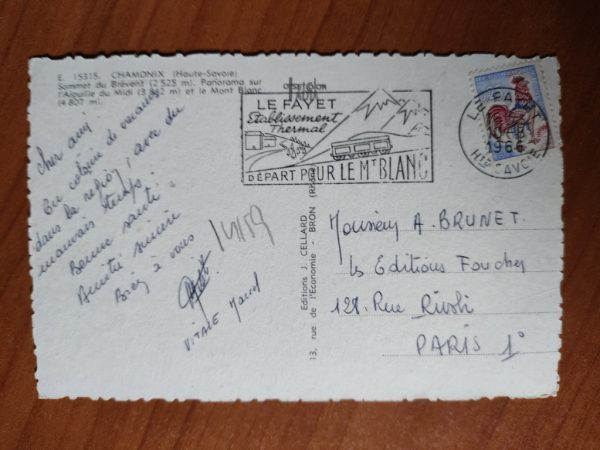 E. 15315. CHAMONIX (Haute-Savoie)
Sommet du Brévent (2 525 m). Panorama sur
l'Aiguille du Midi (3 842 m) et le Mont Blanc
(4 807 m).
Cher ami
En colonie de vacances
dans la région, avec du
mauvais temps.
Bonne santé
Amitié sincère
Bien à vous
VITALE Marcel
LE FAYET
Etablissement
Thermal
DÉPART POUR LE MT BLANC
LE FAYET
1966
HTE SAVOIE
Editions J. CELLARD
13, rue de l'Economie - BRON (Rhône)
Monsieur A. BRUNET.
Les Editions Foucher
128. Rue Rivoli
PARIS 1°